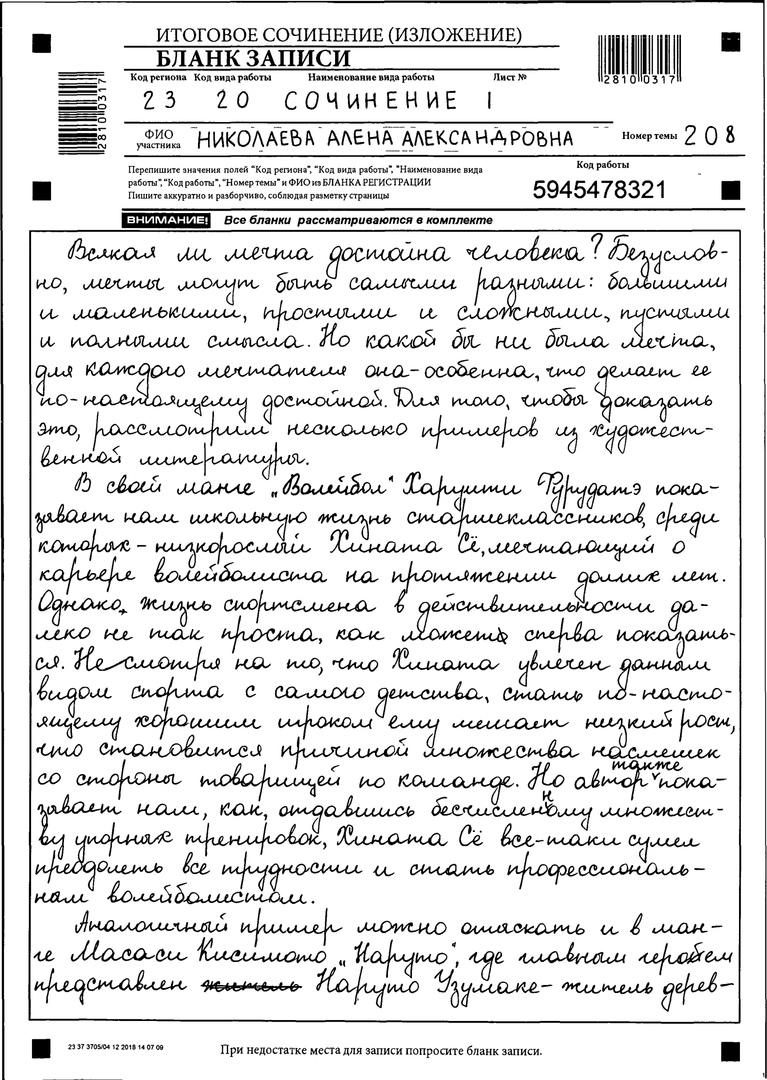 ИТОГОВОЕ СОЧИНЕНИЕ (ИЗЛОЖЕНИЕ)
БЛАНК ЗАПИСИ
Код региона Код вида работы Наименование вида работы Лист №
23 20 СОЧИНЕНИЕ 1
2810 0317
2810 0317
ФИО участника НИКОЛАЕВА АЛЕНА АЛЕКСАНДРОВНА Номер темы 208
Перепишите значения полей "Код региона", "Код вида работы", "Наименование вида
работы", "Код работы", "Номер темы" и ФИО из БЛАНКА РЕГИСТРАЦИИ
Пишите аккуратно и разборчиво, соблюдая разметку страницы
Код работы
5945478321
ВНИМАНИЕ! Все бланки рассматриваются в комплекте
Всякая ли мечта достойна человека? Безуслов-
но, мечты могут быть самыми разными: большими
и маленькими, простыми и сложными, пустыми
и полными смысла. Но какой бы ни была мечта,
для каждого мечтателя она-особенна, что делает ее
по-настоящему достойной. Для того, чтобы доказать
это, рассмотрим несколько примеров из художест-
венной литературы.
В своей манге „Волейбол" Харуити Фурудатэ пока-
зывает нам школьную жизнь старшеклассников, среди
которых - низкорослый Хината Сё, мечтающий о
карьере волейболиста на протяжении долгих лет.
Однако, жизнь спортсмена в действительности да-
леко не так проста, как может сперва показать-
ся. Несмотря на то, что Хината увлечен данным
видом спорта с самого детства, стать по-насто-
ящему хорошим игроком ему мешает низкий рост,
что становится причиной множества насмешек
со стороны товарищей по команде. Но автор также пока-
зывает нам, как, отдавшись бесчисленному множест-
ву упорных тренировок, Хината Сё все-таки сумел
преодолеть все трудности и стать профессиональ-
ным волейболистом.
Аналогичный пример можно отыскать и в ман-
ге Масаси Кисимото „Наруто", где главным героем
представлен житель Наруто Узумаке- житель дерев-
23 37 3705/04 12 2018 14 07 09
При недостатке места для записи попросите бланк записи.